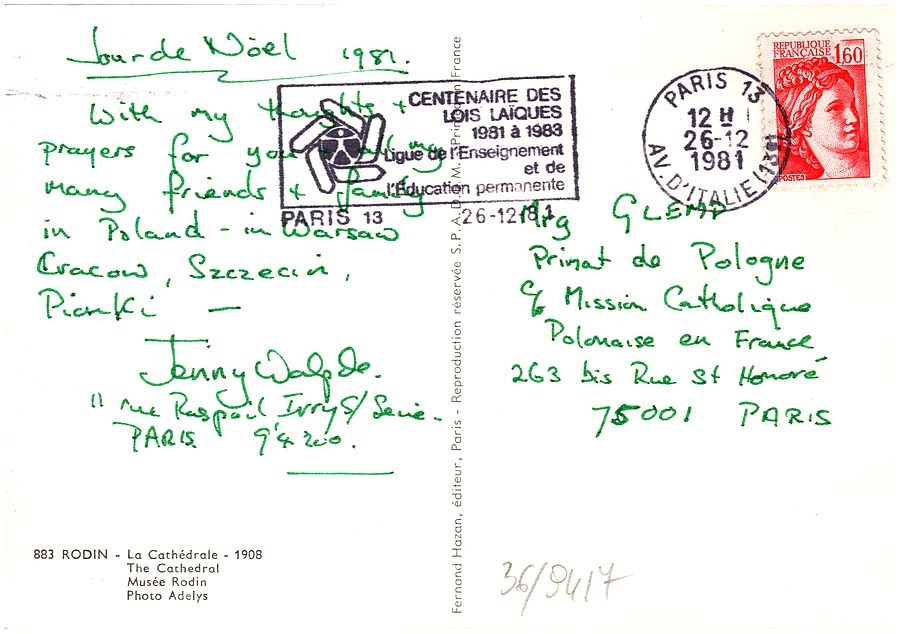 Jour de Nöel 1981.
With my thoughts +
prayers for you + my
many friends + family
in Poland - in Warsaw
Cracow, Szczecin,
Pionki —
Jenny
11 rue Raspail, Ivry S/ Seine.
PARIS 94200.
883 RODIN - La Cathédrale - 1908
The Cathedral
Musée Rodin
Photo Adelys
Fernand Hazan, éditeur, Paris - Reproduction réservée S.P.A.D.E.M. France
CENTENAIRE DES
LOIS LAÏQUES
1981 à 1983
Ligue de l'Enseignement
et de
l'Éducation permanente
PARIS 13
26-12 81
PARIS 13
12 H
26-12
1981
AV. D'ITALIE (13E)
REPUBLIQUE
FRANÇAISE
1,60
POSTES
Mrg GLEMP
Primat de Pologne
c/o Mission Catholique
Polonaise en France
263 bis Rue St Honoré
75001 PARIS
36/9417